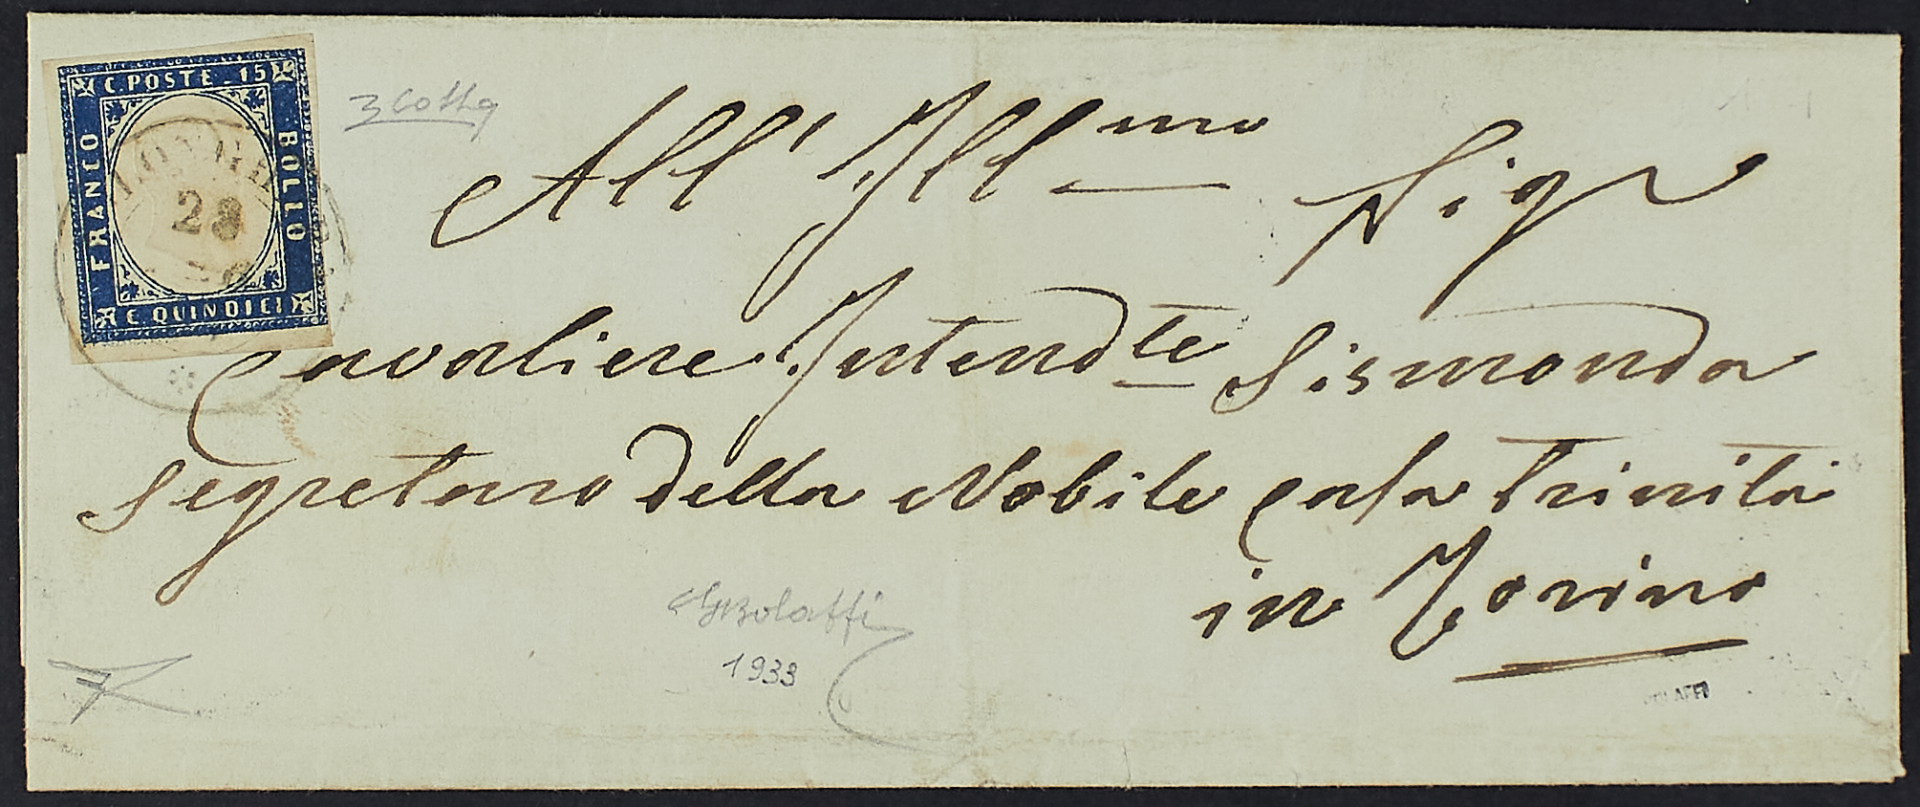 C. POSTE. 15
FRANCO
BOLLO
C. QUINDICI
23
All' Ill.mo Sigr
Cavaliere Intend.te Sismonda
Segretaro della Nobile casa Trinità
in Torino
Bolaffi
1933